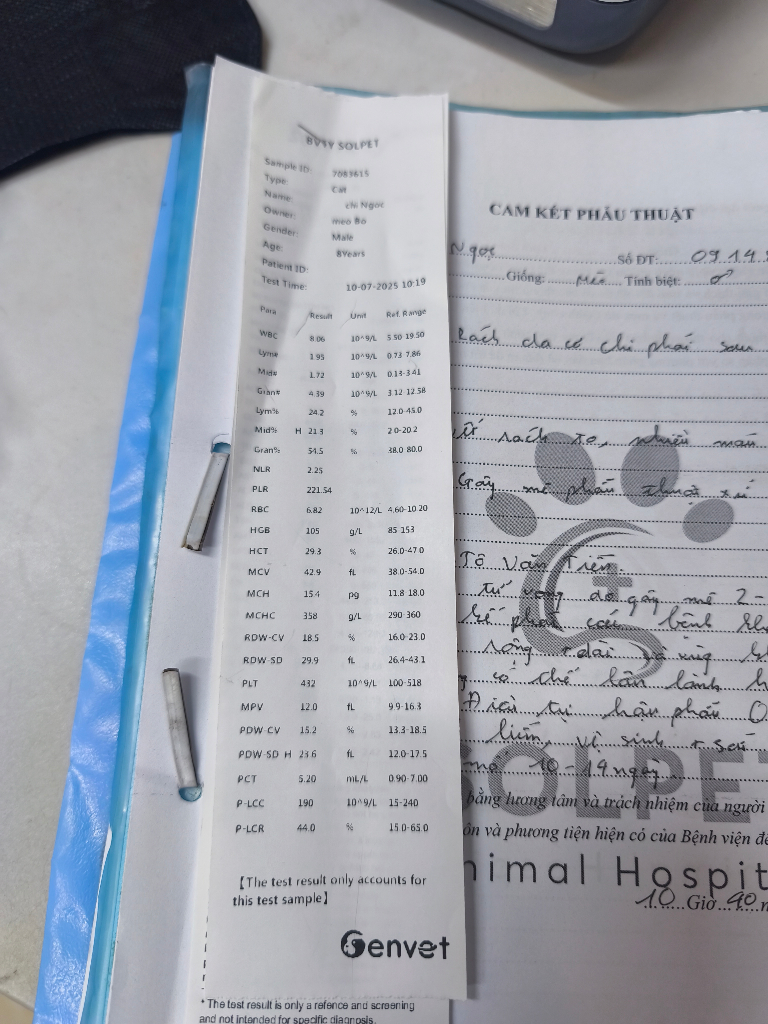 BVTY SOLPET
Sample ID: 7089615
Type: Cat
Name: chi Ngoc
Owner: meo Bo
Gender: Male
Age: 8Years
Patient ID:
Test Time: 10-07-2025 10:19
Para Result Unit Ref. Range
WBC 8.06 10^9/L 5.50-19.50
Lym# 1.95 10^9/L 0.73-7.86
Mid# 1.72 10^9/L 0.13-3.41
Gran# 4.39 10^9/L 3.12-12.58
Lym% 24.2 % 12.0-45.0
Mid% H 21.3 % 2.0-20.2
Gran% 54.5 % 38.0-80.0
NLR 2.25
PLR 221.54
RBC 6.82 10^12/L 4.60-10.20
HGB 105 g/L 85-153
HCT 29.3 % 26.0-47.0
MCV 42.9 fL 38.0-54.0
MCH 15.4 pg 11.8-18.0
MCHC 358 g/L 290-360
RDW-CV 18.5 % 16.0-23.0
RDW-SD 29.9 fL 26.4-43.1
PLT 432 10^9/L 100-518
MPV 12.0 fL 9.9-16.3
PDW-CV 15.2 % 13.3-18.5
PDW-SD H 23.6 fL 12.0-17.5
PCT 5.20 mL/L 0.90-7.00
P-LCC 190 10^9/L 15-240
P-LCR 44.0 % 15.0-65.0
【The test result only accounts for
this test sample】
Genvet
* The test result is only a refence and screening
and not intended for specific diagnosis.
CAM KẾT PHẪU THUẬT
Ngọc Số ĐT: 09.14
Giống: Mèo Tính biệt: ♂
Rách da cổ chi phải sau
rách to, nhiều
Gây mê phẫu thuật xử
Tô Văn Tiến
tử vong do gây mê 2-
các bệnh
rộng + dài
có thể lâu lành
Điều trị hậu phẫu
liếm, vệ sinh +
10-14 ngày
bằng lương tâm và trách nhiệm của người
ôn và phương tiện hiện có của Bệnh viện để
SOLPET
nimal Hospit
10 Giờ 40